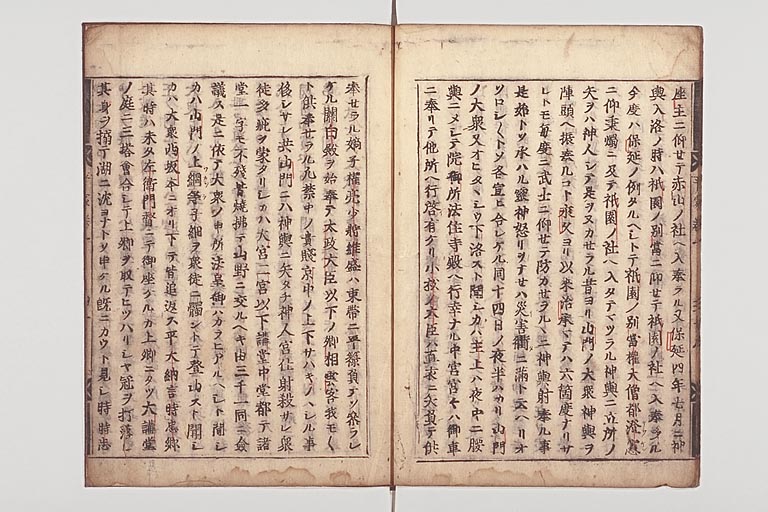 座主ニ仰セテ赤山ノ社ヘ入奉ラル又保延四年七月ニ神
輿入洛ノ時ハ祇園ノ別當ニ仰セテ祇園ノ社ヘ入奉ラル
今度ハ保延ノ例タルヘシトテ祇園ノ別當權大僧都澄憲
ニ仰乗燭ニ及テ祇園ノ社ヘ入タテマツラル神輿ニ立所ノ
矢ヲハ神人シテ是ヲヌカセラル昔ヨリ山門ノ大衆神輿ヲ
陣頭ヘ振奉ルコト永久ヨリ以来治承マテハ六箇度ナリサ
レトモ毎度ニ武士ニ仰セテ防カセラルヽニ神輿射奉ル事
是始トソ承ハル靈神怒リヲナセハ災害衢ニ滿ト云ヘリオ
ソロシ〳〵トソ各宣ヒ合レケル同十四日ノ夜半ハカリ山門
ノ大衆又オヒタヽシウ下洛スト聞シカハ主上ハ夜中ニ腰
輿ニメシテ院御所法住寺殿ヘ行幸ナル中宮宮々ハ御車
ニ奉リテ他所ヘ行啓有ケリ小松ノ大臣ハ直衣ニ矢負テ供
奉セラル嫡子權亮少將維盛ハ束帶ニ平簶負テソ參ラレ
ケル關白殿ヲ始奉テ太政大臣以下ノ卿相雲客我モ〳〵
ト供奉セラル凡禁中ノ貴賤京中ノ上下サハキノヽシル事
侈シサレ共山門ニハ神輿ニ矢タチ神人宮仕射殺サレ衆
徒多疵ヲ蒙タリシカハ大宮二宮以下講堂中堂都テ諸
堂一宇モ不殘皆燒拂テ山野ニ交ルヘキ由三千一同ニ僉
議ス是ニ依テ大衆ノ申所法皇御ハカラヒアルヘシト聞シ
カハ山門ノ上綱等子細ヲ衆徒ニ觸ントテ登山スト聞シ
カハ大衆西坂本ニオリ下テ皆追返ス平大納言時忠卿
其時ハ未タ左衛門督ニテ御座ケルカ上卿ニタツ大講堂
ノ庭ニ三塔會合シテ上卿ヲ取テヒツハリシヤ冠ヲ打落シ
其身ヲ搦テ湖ニ沈ヨナトソ申ケル既ニカウト見シ時時忠